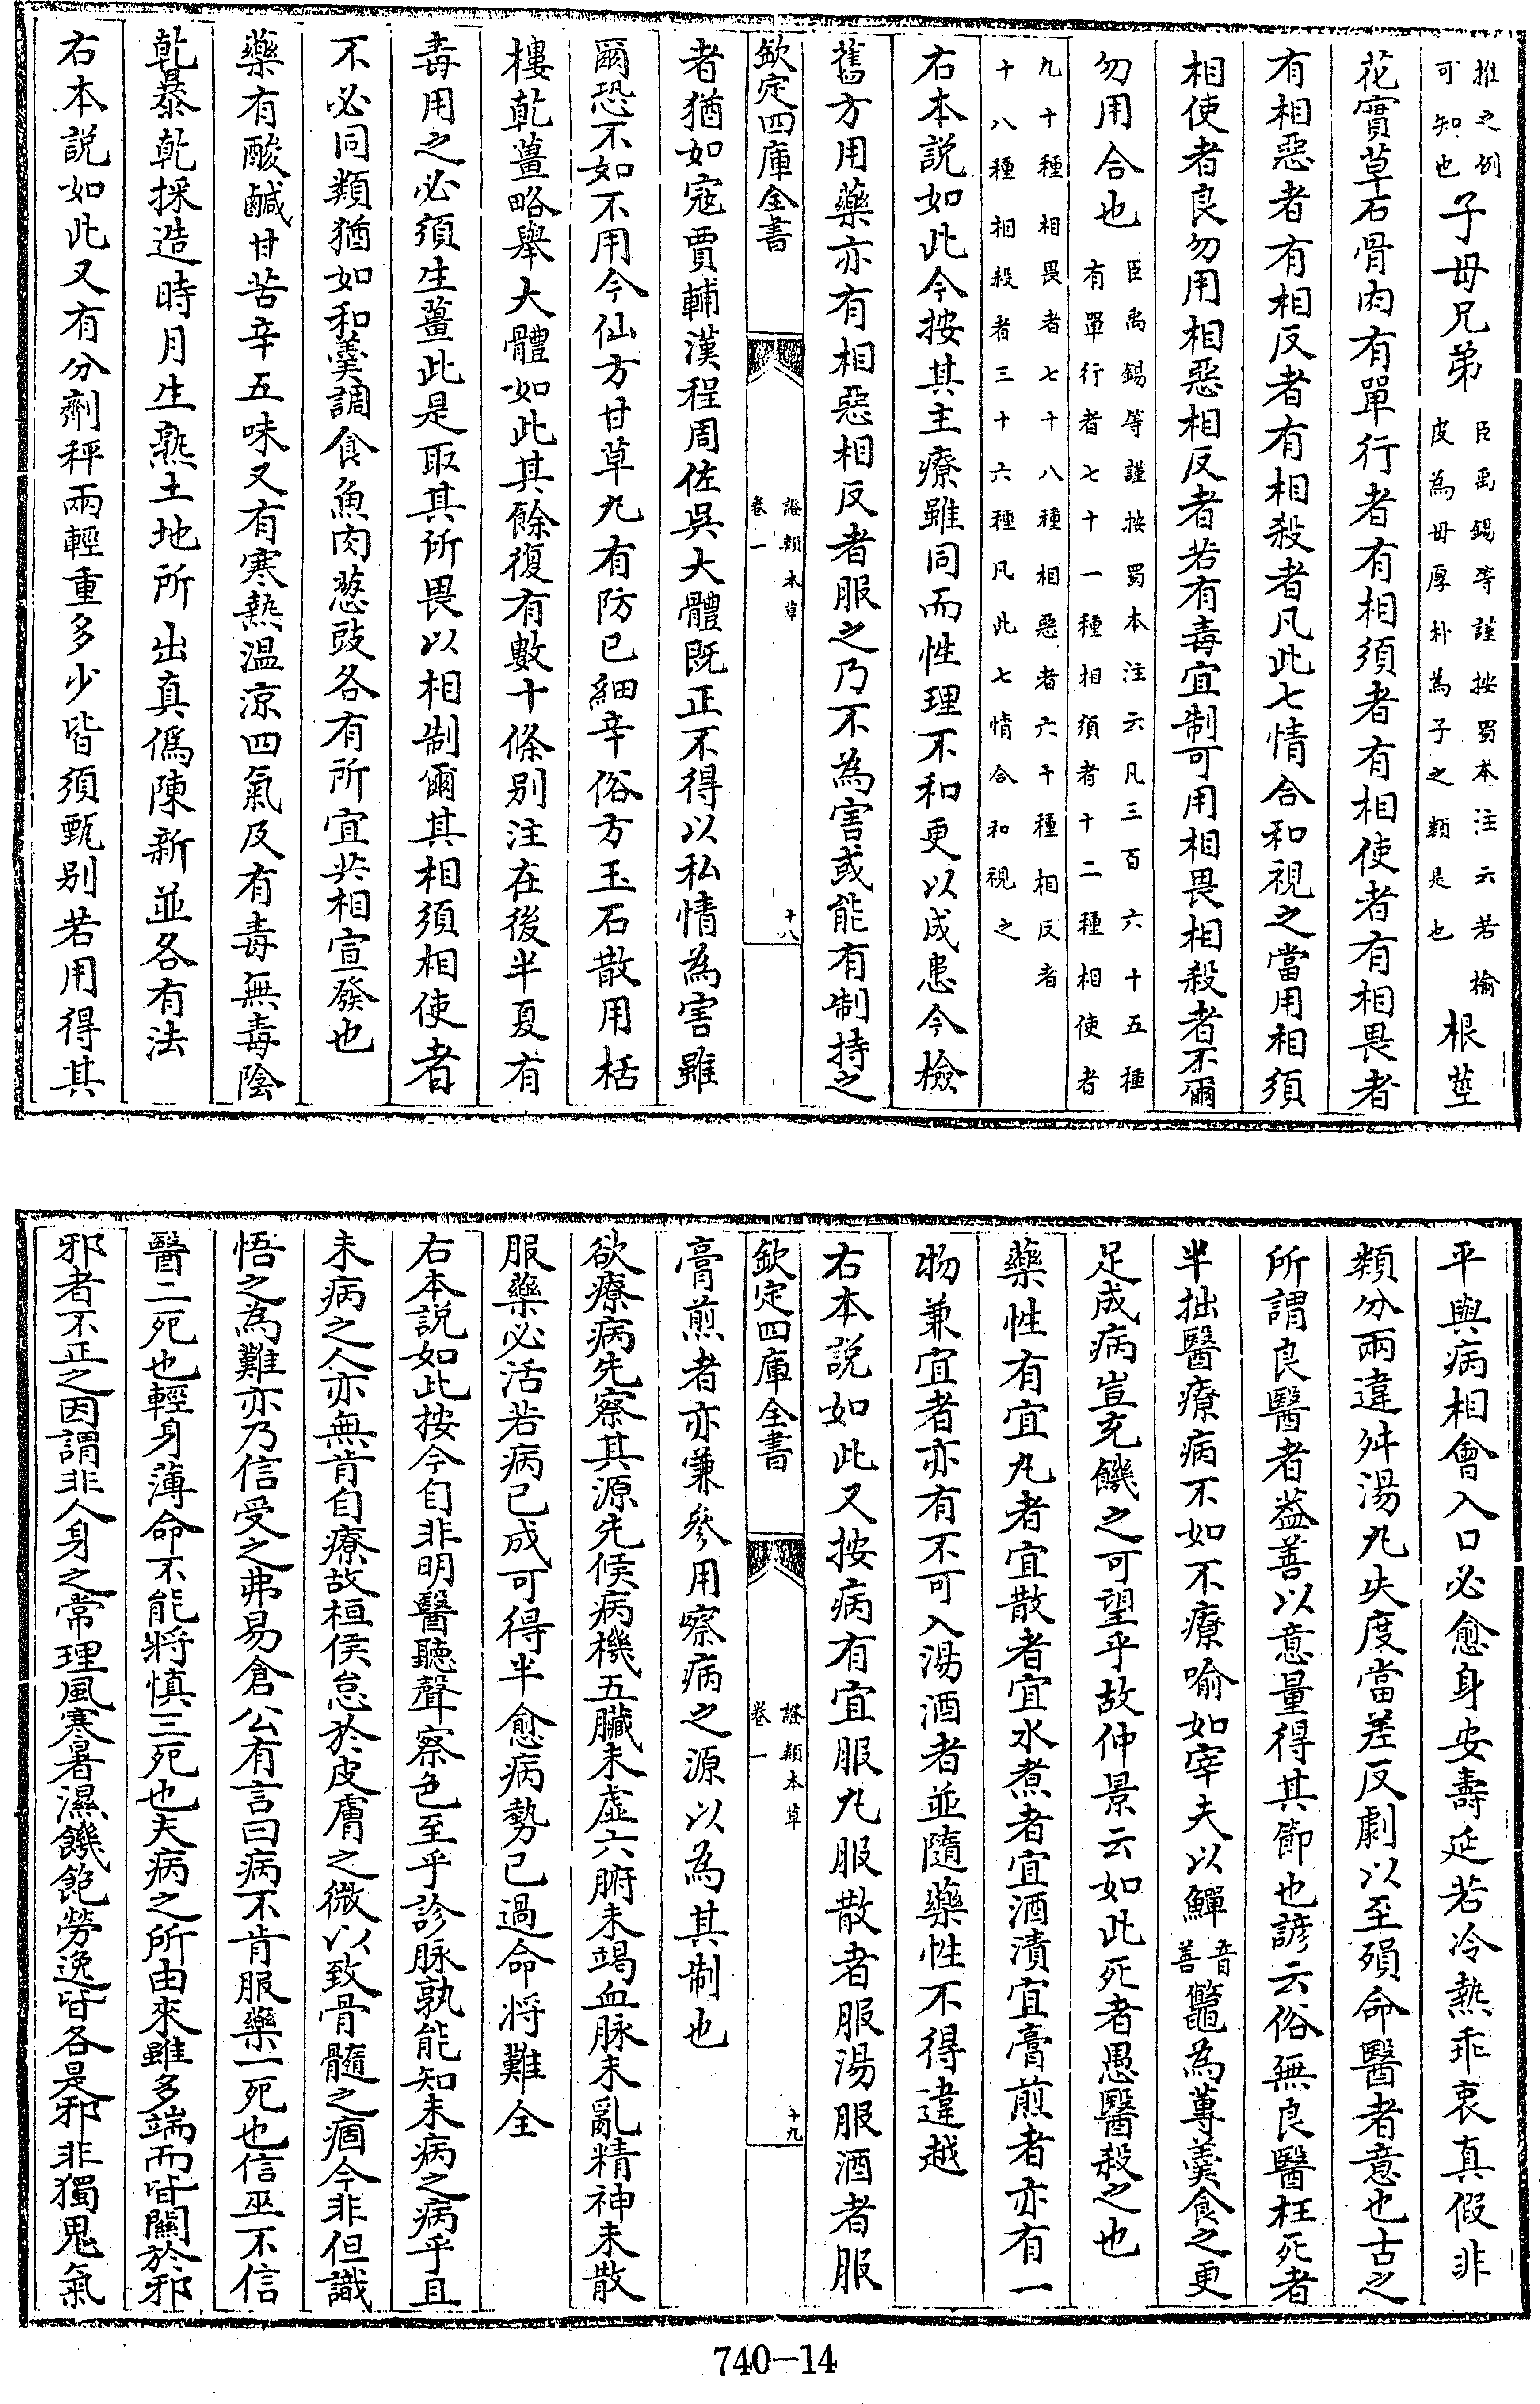 推之例可知也子母兄弟臣禹錫等謹按蜀本注云若榆皮為母厚朴為子之類是也根莖
花實草石骨肉有單行者有相須者有相使者有相畏者
有相惡者有相反者有相殺者凡此七情合和視之當用相須
相使者良勿用相惡相反者若有毒宜制可用相畏相殺者不爾
勿用合也臣禹錫等謹按蜀本注云凡三百六十五種有單行者七十一種相須者十二種相使者
九十種相畏者七十八種相惡者六十種相反者十八種相殺者三十六種凡此七情合和視之
右本說如此今按其主療雖同而性理不和更以成患今檢
舊方用藥亦有相惡相反者服之乃不為害或能有制持之
欽定四庫全書 證類本草卷一 十八
者猶如寇賈輔漢程周佐吳大體既正不得以私情為害雖
爾恐不如不用今仙方甘草丸有防已細辛俗方玉石散用栝
樓乾薑略舉大體如此其餘復有數十條别注在後半夏有
毒用之必須生薑此是取其所畏以相制爾其相須相使者
不必同類猶如和羹調食魚肉葱豉各有所宜共相宣發也
藥有酸鹹甘苦辛五味又有寒熱溫凉四氣及有毒無毒陰
乾暴乾採造時月生熟土地所出真偽陳新並各有法
右本說如此又有分劑秤兩輕重多少皆須甄别若用得其
平與病相會入口必愈身安壽延若冷熱乖衷真假非
類分兩違舛湯丸失度當差反劇以至殞命醫者意也古之
所謂良醫者益善以意量得其節也諺云俗無良醫枉死者
半拙醫療病不如不療喻如宰夫以鱓音善鼈為蓴羹食之更
足成病豈充饑之可望乎故仲景云如此死者愚醫殺之也
藥性有宜丸者宜散者宜水煮者宜酒漬宜膏煎者亦有一
物兼宜者亦有不可入湯酒者並隨藥性不得違越
右本說如此又按病有宜服丸服散者服湯服酒者服
欽定四庫全書 證類本草卷一 十九
膏煎者亦兼參用察病之源以為其制也
欲療病先察其源先候病機五臟未虛六腑未竭血脉未亂精神未散
服藥必活若病已成可得半愈病勢已過命將難全
右本說如此按今自非明醫聽聲察色至乎診脉孰能知未病之病乎且
未病之人亦無肯自療故桓侯怠於皮膚之微以致骨髓之痼今非但識
悟之為難亦乃信受之弗易倉公有言曰病不肯服藥一死也信巫不信
醫二死也輕身薄命不能將慎三死也夫病之所由來雖多端而皆關於邪
邪者不正之因謂非人身之常理風寒暑濕饑飽勞逸皆各是邪非獨鬼氣
740-14